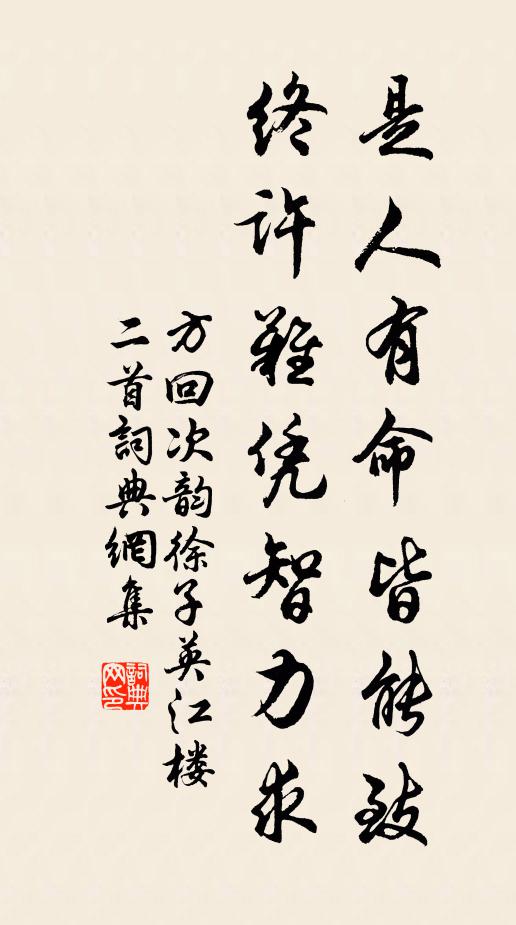 是人有命皆能致
终许难凭智力求
方回次韵徐子英江楼
二首詞典網集
詞典
网印